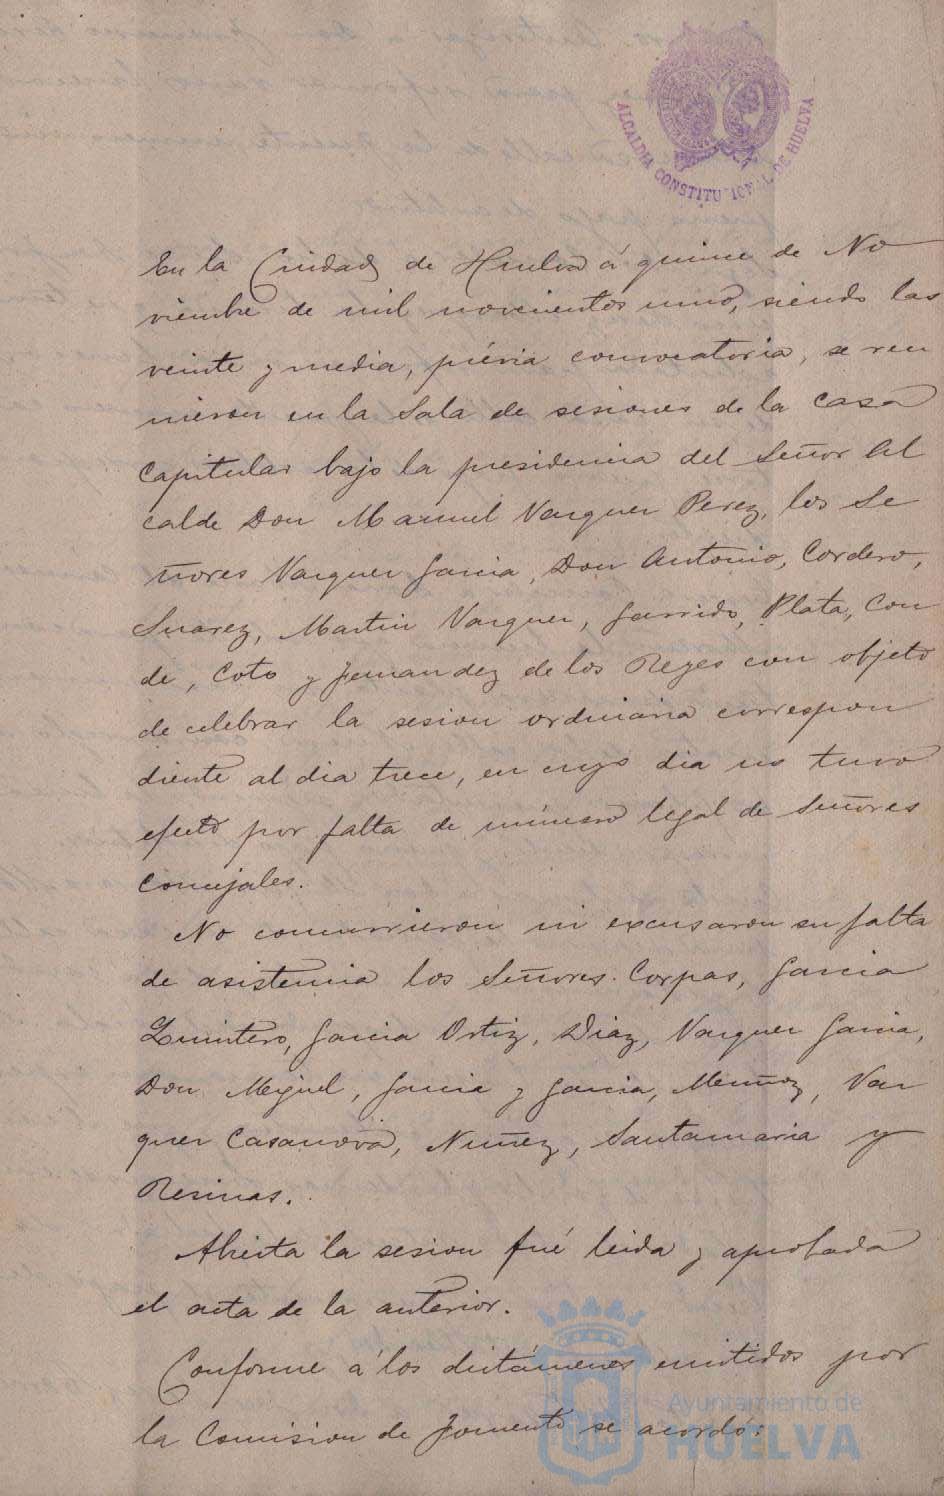 ALCALDIA CONSTITUCIONAL DE HUELVA
En la Ciudad de Huelva á quince de No
viembre de mil novecientos uno, siendo las
veinte y media, prévia convocatoria, se reu
nieron en la Sala de sesiones de la casa
Capitular bajo la presidencia del Señor Al
calde Don Manuel Vazquez Perez, los Se
ñores Vazquez Garcia, Don Antonio, Cordero,
Suarez, Martin Vazquez, Garrido, Plata, Con
de, Coto y Fernandez de los Reyes con objeto
de celebrar la sesion ordinaria correspon
diente al dia trece, en cuyo dia no tuvo
efecto por falta de número legal de Señores
Concejales.
No concurrieron ni excusaron su falta
de asistencia los Señores Corpas, Garcia
Quintero, Garcia Ortiz, Diaz, Vazquez Garcia,
Don Miguel, Garcia y Garcia, Muñoz, Vaz
quez Casanova, Nuñez, Santamaria y
Resinas.
Abierta la sesion fué leida y aprobada
el acta de la anterior.
Conforme á los dictámenes emitidos por
la Comision de Fomento se acordó:
Ayuntamiento de
HUELVA